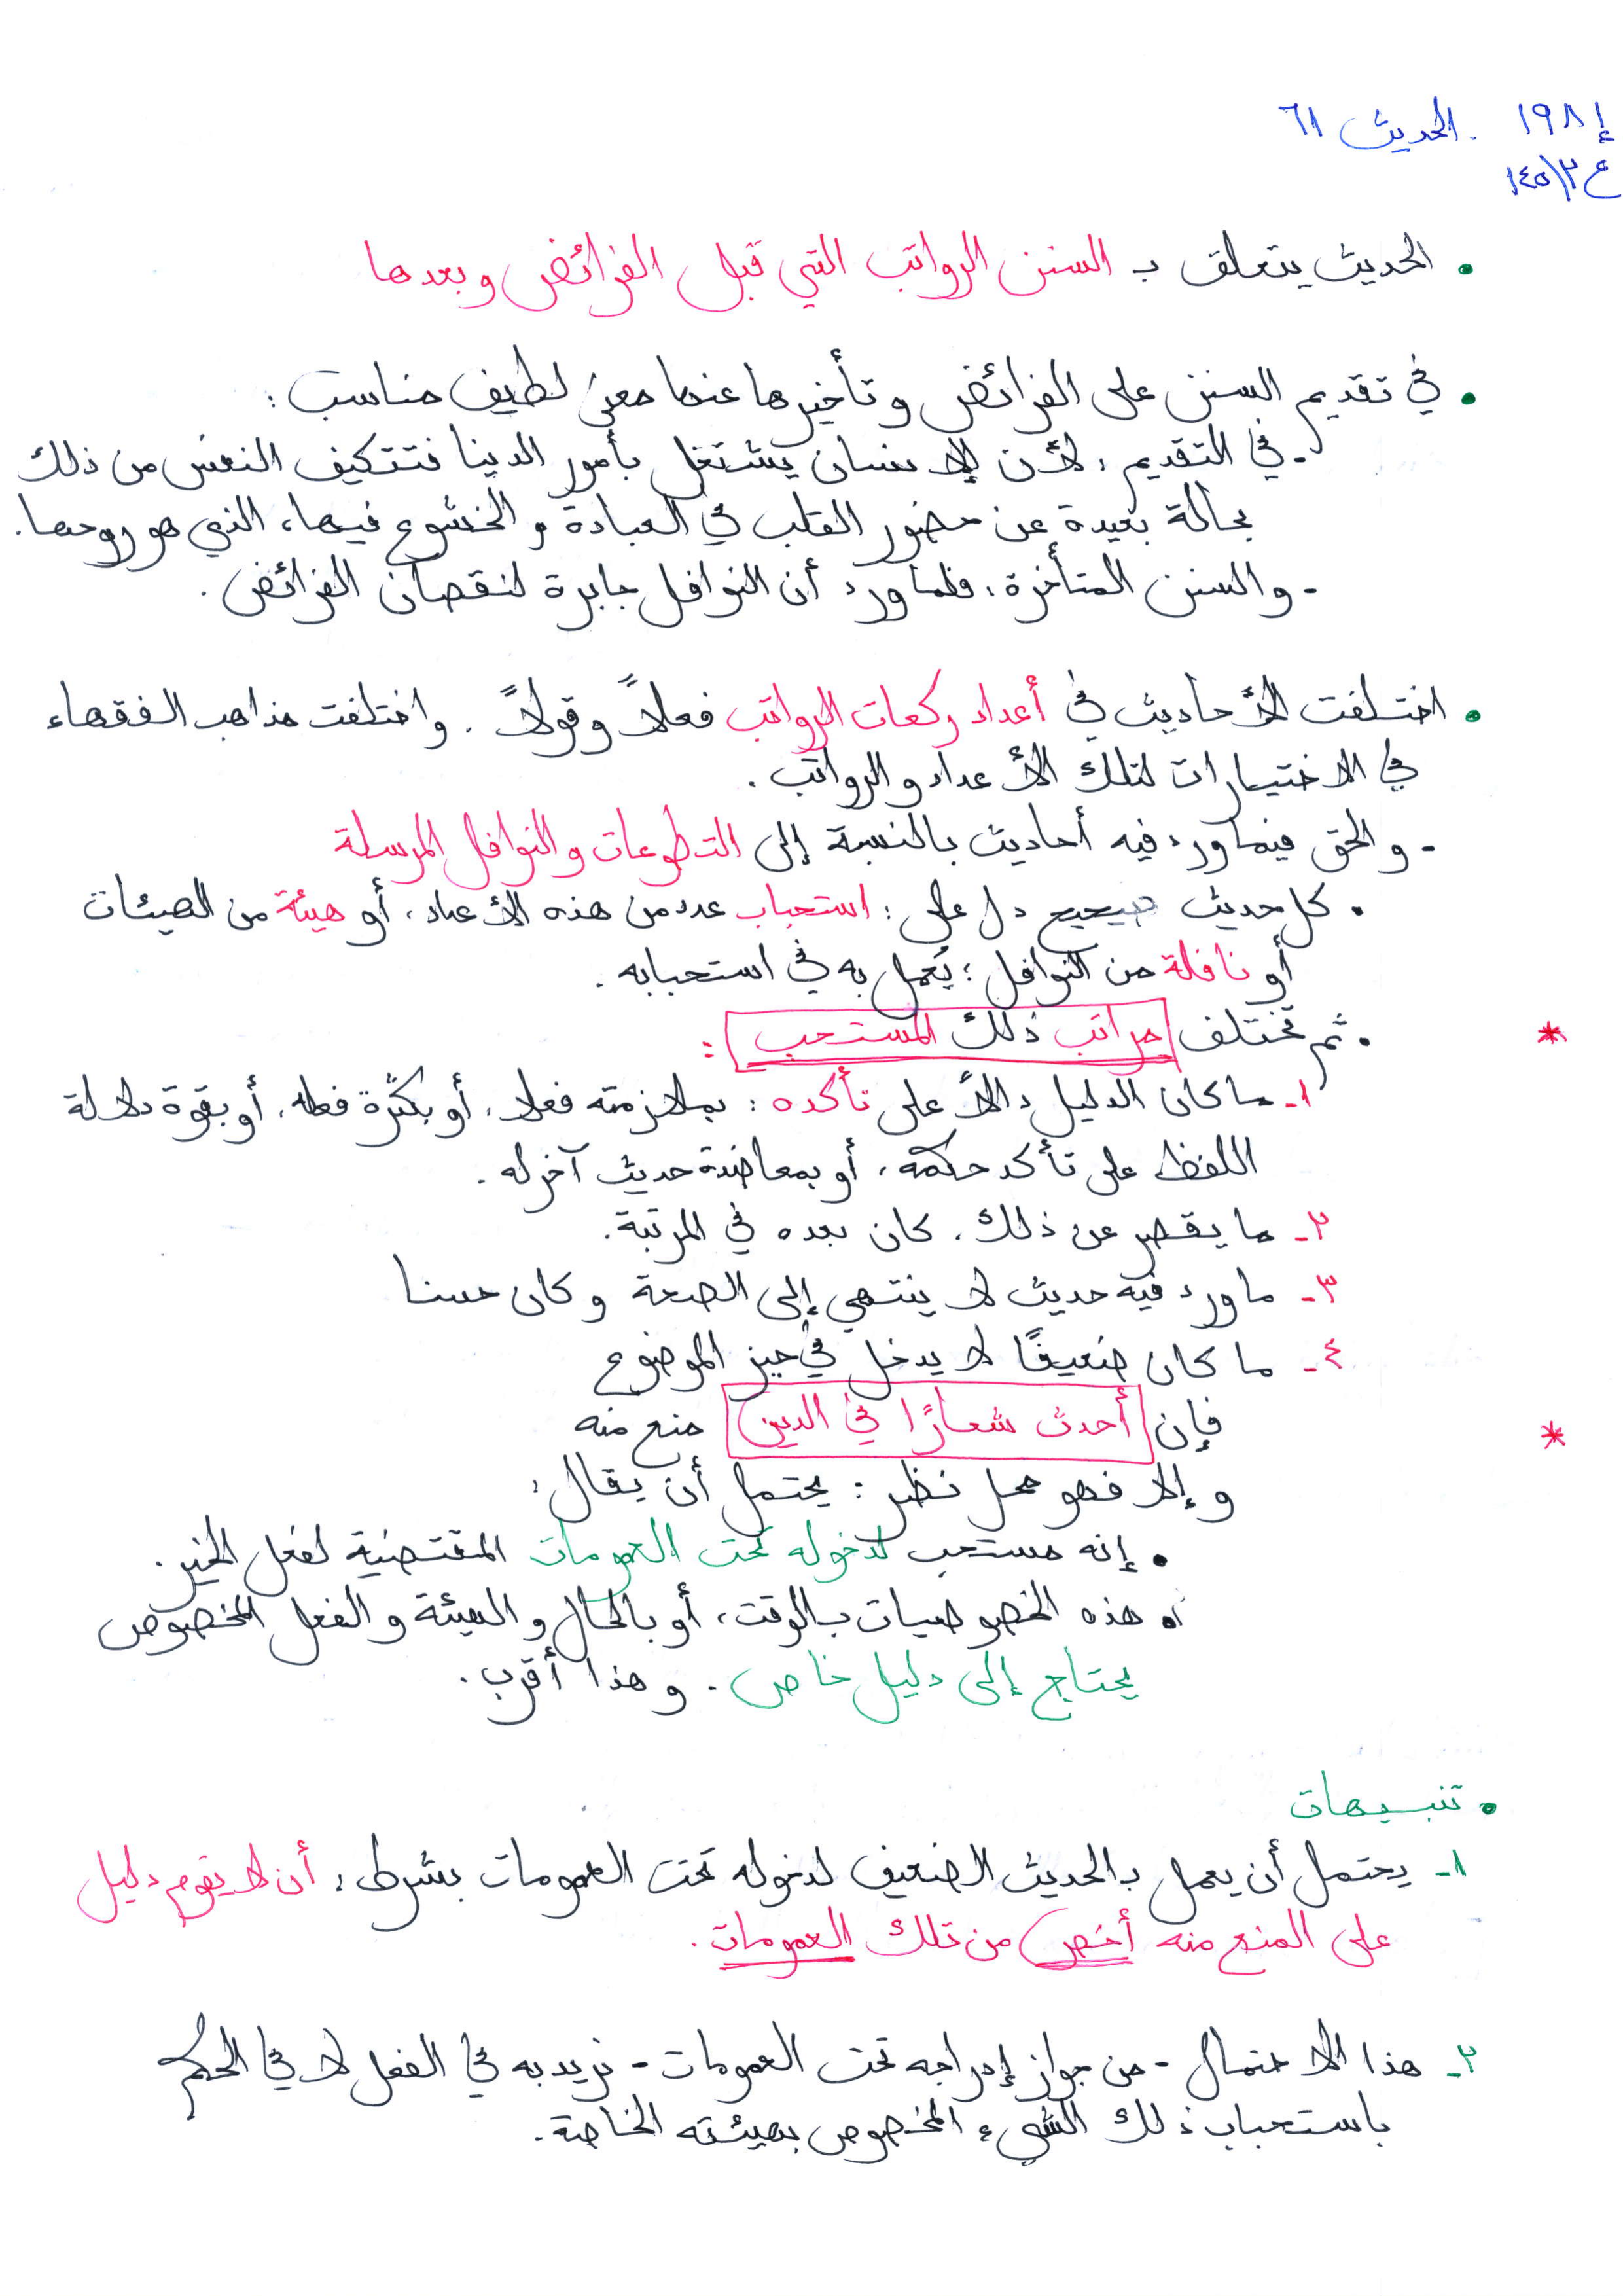 إ ١٩٨ . الحديث ٦١
ع ٢\١٤٥
• الحديث يتعلق بـ السنن الرواتب التي قبل الفرائض وبعدها
• في تقديم السنن على الفرائض وتأخيرها عنها معنى لطيف مناسب :
- في التقديم : لأن الإنسان يشتغل بأمور الدنيا فتتكيف النفس من ذلك
بحالة بعيدة عن حضور القلب في العبادة والخشوع فيها، الذي هو روحها.
- والسنن المتأخرة : فلما ورد أن النوافل جابرة لنقصان الفرائض .
• اختلفت الأحاديث في أعداد ركعات الرواتب فعلاً وقولاً . واختلفت مذاهب الفقهاء
في الاختيارات لتلك الأعداد والرواتب .
- والحق فيما ورد فيه أحاديث بالنسبة إلى التطوعات والنوافل المرسلة
• كل حديث صحيح دل على : استحباب عدد من هذه الأعداد، أو هيئة من الهيئات
أو نافلة من النوافل ؛ يُعمل به في استحبابه .
* • ثم تختلف مراتب ذلك المستحب :
١- ما كان الدليل دالاً على تأكده : بملازمته فعلا، أو بكثرة فعله، أو بقوة دلالة
اللفظ على تأكد حكمه، أو بمعاضدة حديث آخر له .
٢- ما يقصر عن ذلك، كان بعده في المرتبة.
٣- ما ورد فيه حديث لا ينتهي إلى الصحة وكان حسنا
٤- ما كان ضعيفًا لا يدخل في حيز الموضوع
* فإن أحدث شعارًا في الدين منع منه
وإلا فهو محل نظر : يحتمل أن يقال :
• إنه مستحب لدخوله تحت العمومات المقتضية لفعل الخير.
• هذه الخصوصيات بالوقت، أو بالحال والهيئة والفعل المخصوص
يحتاج إلى دليل خاص . وهذا أقرب .
• تنبيهات
١- يحتمل أن يعمل بالحديث الضعيف لدخوله تحت العمومات بشرط : أن لا يقوم دليل
على المنع منه أخص من تلك العمومات .
٢- هذا الاحتمال - من جواز إدراجه تحت العمومات - نريد به في الفعل لا في الحكم
باستحباب ذلك الشيء المخصوص بهيئته الخاصة.